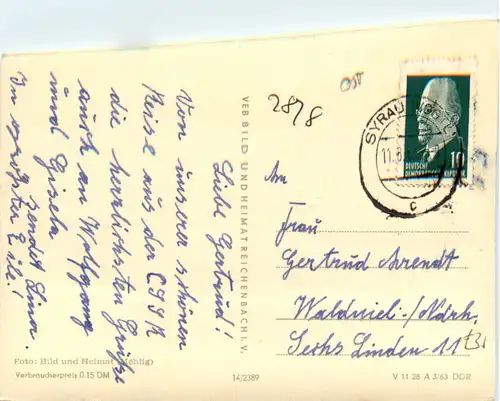 Liebe Gertrud!
Von unserer schönen
Reise aus der ČSSR
die herzlichsten Grüße
auch an Wolfgang
und Gisela
sendet Lina.
In größter Eile!
VEB BILD UND HEIMAT REICHENBACH I. V.
2878
SYRAU
11.
c
10
DEUTSCHE
DEMOKRATISCHE REPUBLIK
An
Frau
Gertrud Arendt
Waldniel-/Ndrh.
Sechs Linden 11
Foto: Bild und Heimat
Verbraucherpreis 0.15 DM
14/2389
V 11 28 A 3/63 DDR